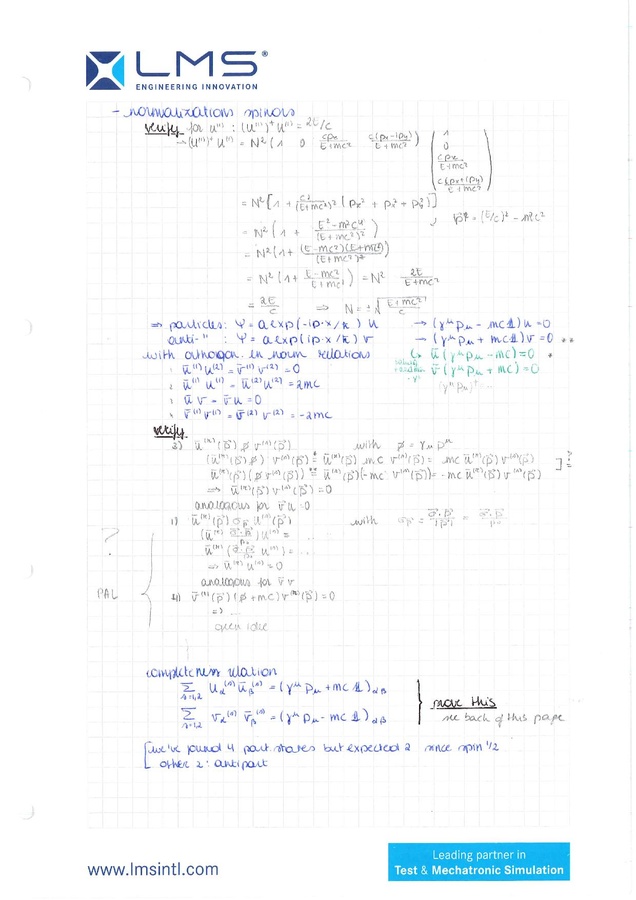 LMS®
ENGINEERING INNOVATION
- normalizations spinors
verify for u⁽¹⁾ : (u⁽¹⁾)† u⁽¹⁾ = 2E/c
→ (u⁽¹⁾)† u⁽¹⁾ = N² (1 0 cp_z/(E+mc²) c(p_x-ip_y)/(E+mc²)) (1 0 cp_z/(E+mc²) c(p_x+ip_y)/(E+mc²))
= N² [1 + c²/(E+mc²)² (p_z² + p_x² + p_y²)]
p⃗² = (E/c)² - m²c²
= N² (1 + (E²-m²c⁴)/(E+mc²)²)
= N² (1 + (E-mc²)(E+mc²)/(E+mc²)²)
= N² (1 + (E-mc²)/(E+mc²)) = N² 2E/(E+mc²)
= 2E/c ⇒ N = ±√((E+mc²)/c)
⇒ particles: ψ = a exp(-ip·x/ħ) u → (γ^μ p_μ - mc𝟙)u = 0 *
anti-": ψ = a exp(ip·x/ħ) v → (γ^μ p_μ + mc𝟙)v = 0 **
with orthogon. en norm relations
ū(γ^μ p_μ - mc) = 0 *
v̄(γ^μ p_μ + mc) = 0
: ū⁽¹⁾ u⁽²⁾ = v̄⁽¹⁾ v⁽²⁾ = 0
: ū⁽¹⁾ u⁽¹⁾ = ū⁽²⁾ u⁽²⁾ = 2mc
: ū v = v̄ u = 0
: v̄⁽¹⁾ v⁽¹⁾ = v̄⁽²⁾ v⁽²⁾ = -2mc
verify
3) ū⁽ʳ⁾(p⃗) p̸ v⁽ˢ⁾(p⃗) with p̸ = γ_μ p^μ
(ū⁽ʳ⁾(p⃗) p̸) v⁽ˢ⁾(p⃗) =* ū⁽ʳ⁾(p⃗) mc v⁽ˢ⁾(p⃗) = mc ū⁽ʳ⁾(p⃗) v⁽ˢ⁾(p⃗)
ū⁽ʳ⁾(p⃗)(p̸ v⁽ˢ⁾(p⃗)) =** ū⁽ʳ⁾(p⃗)(-mc v⁽ˢ⁾(p⃗)) = -mc ū⁽ʳ⁾(p⃗) v⁽ˢ⁾(p⃗)
⇒ ū⁽ʳ⁾(p⃗) v⁽ˢ⁾(p⃗) = 0
analogous for v̄u = 0
1) ū⁽ʳ⁾(p⃗) σ_p u⁽ˢ⁾(p⃗) with
= ...
= ...
⇒ ū⁽ʳ⁾ u⁽ˢ⁾ = 0
?
PAL
analogous for v̄ v
= 0
⇒ ...
open idee
completeness relation
Σ_{s=1,2} u_α⁽ˢ⁾ ū_β⁽ˢ⁾ = (γ^μ p_μ + mc 𝟙)_{αβ}
Σ_{s=1,2} v_α⁽ˢ⁾ v̄_β⁽ˢ⁾ = (γ^μ p_μ - mc 𝟙)_{αβ}
prove this
see back of this page
[we've found 4 part. states but expected 2 since spin 1/2
other 2: antipart
www.lmsintl.com
Leading partner in
Test & Mechatronic Simulation